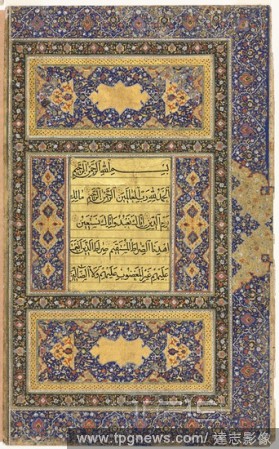 بسم الله الرحمن الرحيم
الحمد لله رب العالمين الرحمن الرحيم مالك
يوم الدين اياك نعبد واياك نستعين
اهدنا الصراط المستقيم صراط الذين انعمت
عليهم غير المغضوب عليهم ولا الضالين
www.tpgnews.com/達志影像